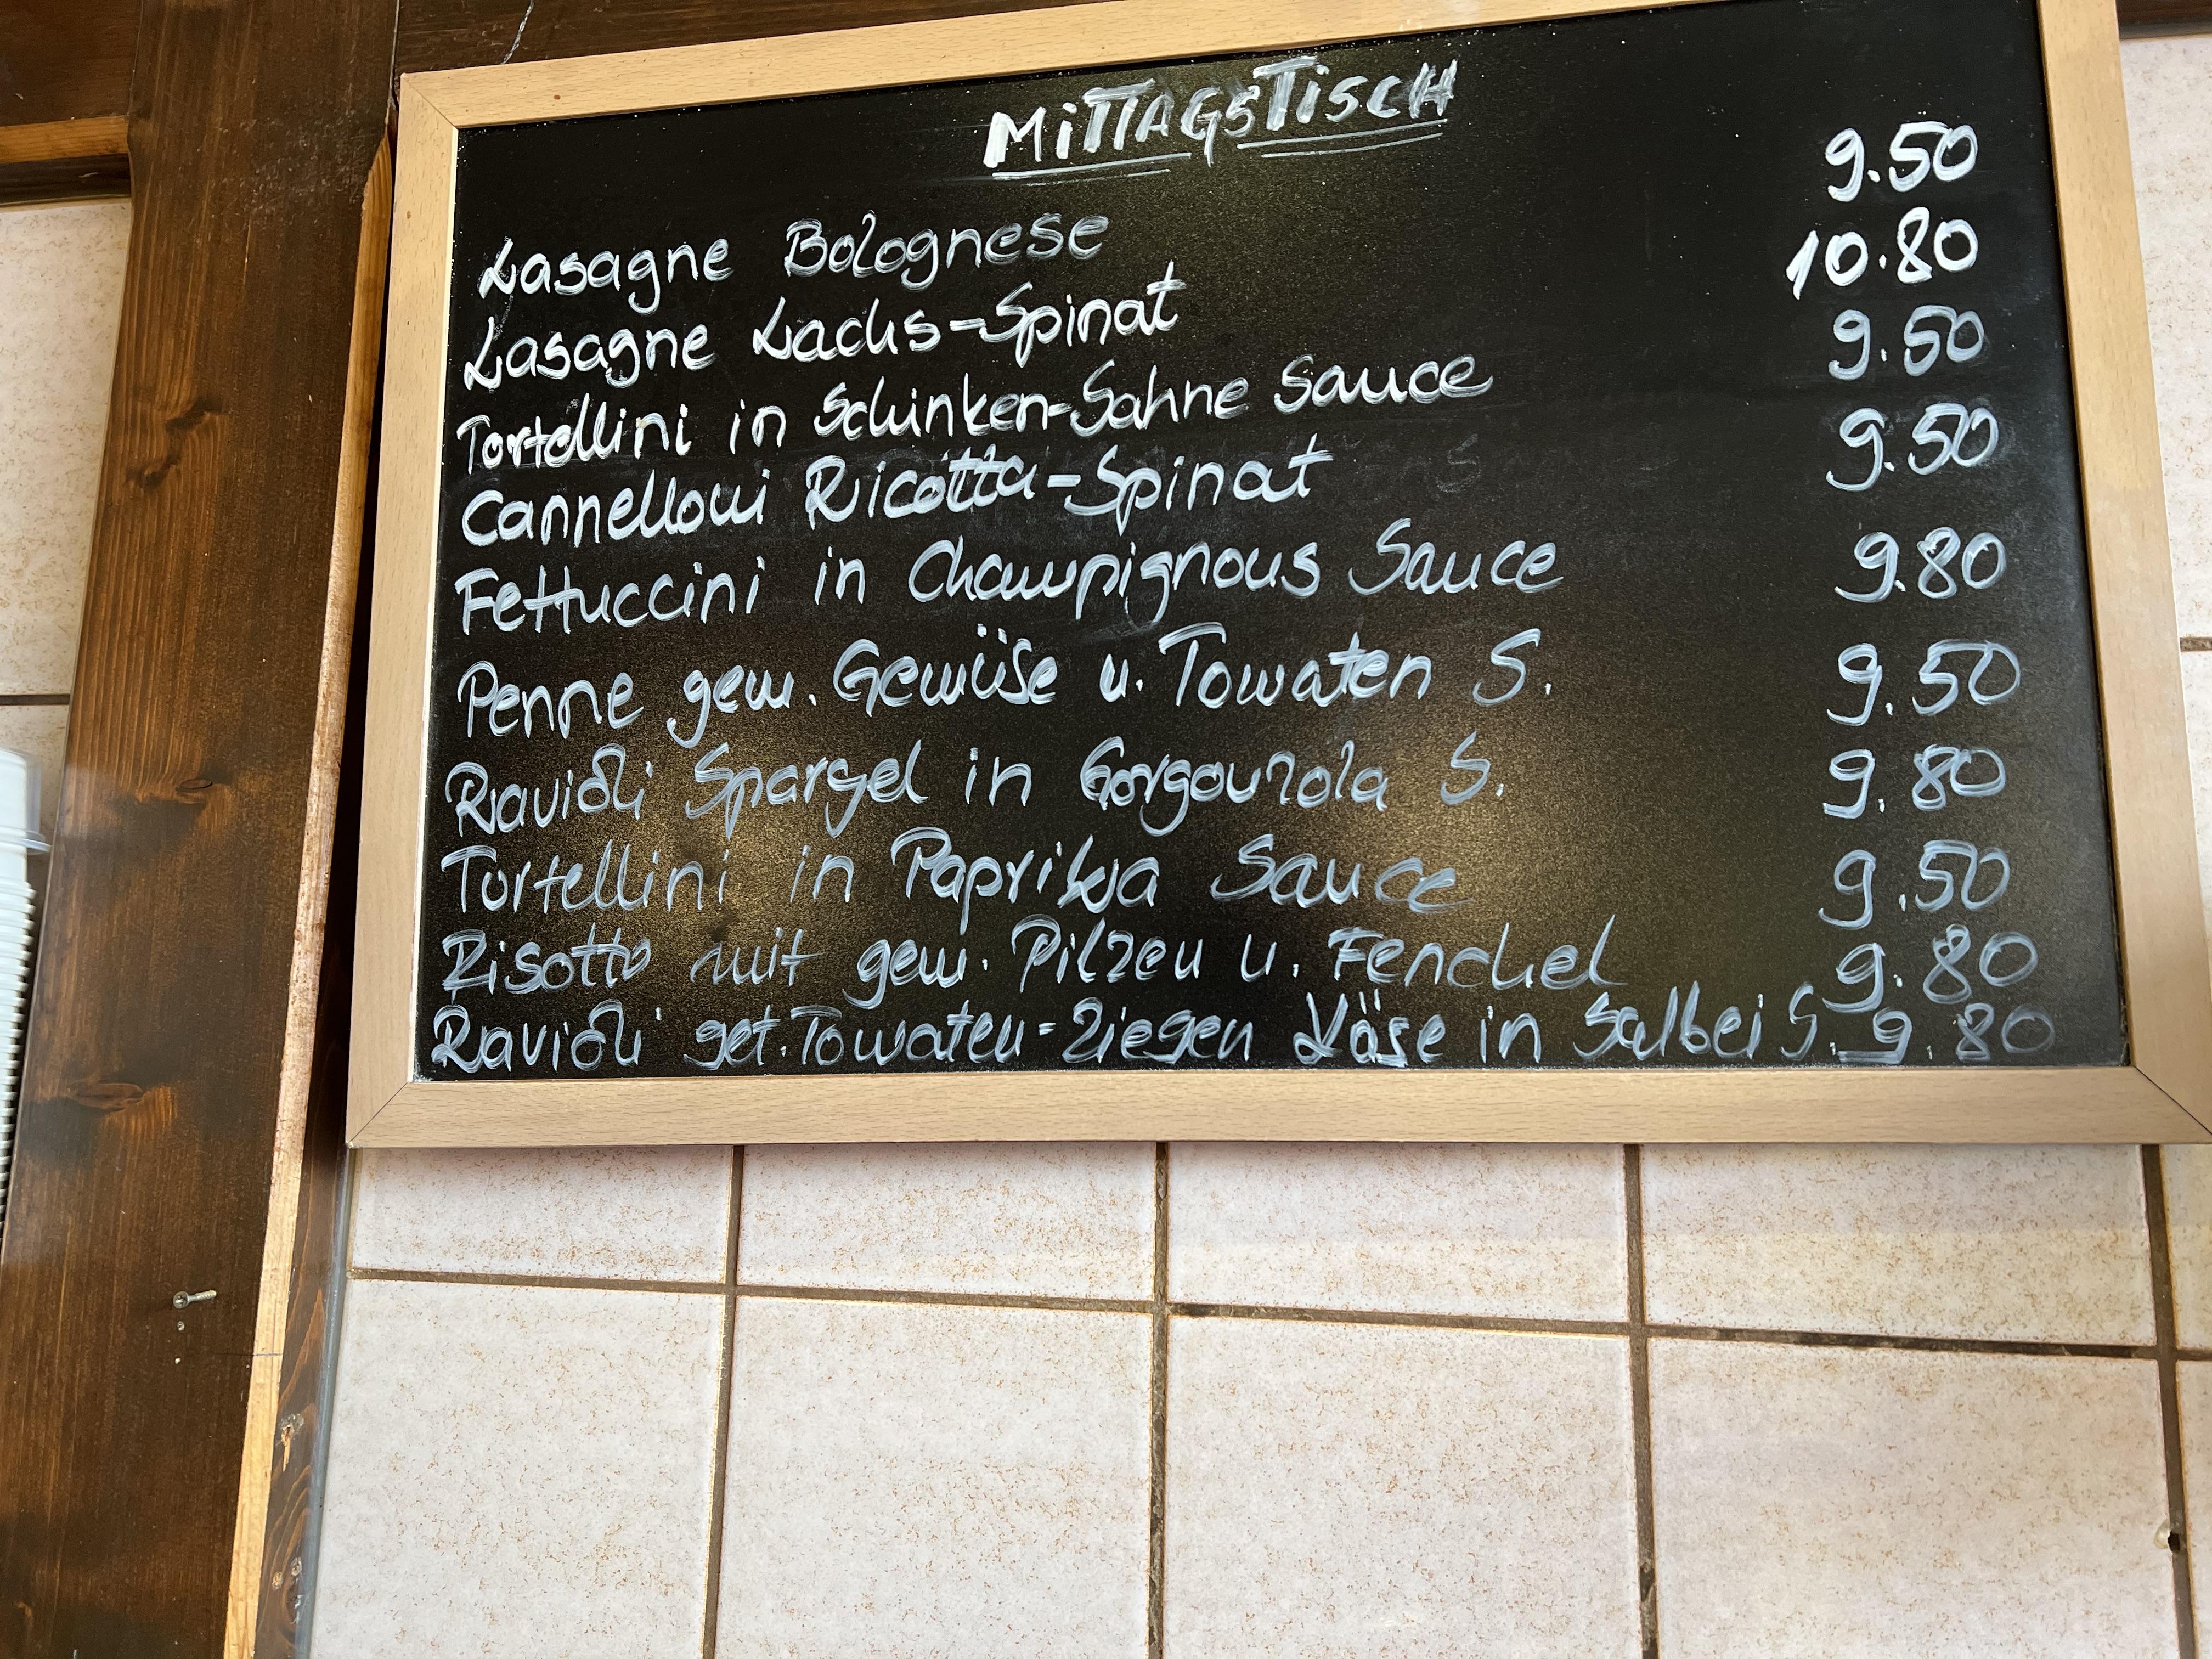 MITTAGSTISCH
Lasagne Bolognese 9.50
Lasagne Lachs-Spinat 10.80
Tortellini in Schinken-Sahne Sauce 9.50
Cannelloni Ricotta-Spinat 9.50
Fettuccini in Champignons Sauce 9.80
Penne gem. Gemüse u. Tomaten S. 9.50
Ravioli Spargel in Gorgonzola S. 9.80
Tortellini in Paprika Sauce 9.50
Risotto mit gem. Pilzen u. Fenchel 9.80
Ravioli get. Tomaten-Ziegen Käse in Salbei S. 9.80